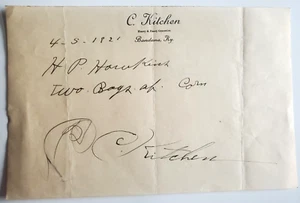 C. Kitchen
Bandana, Ky
4-5-1921
H P Howkins
two Bags of Corn
C Kitchen